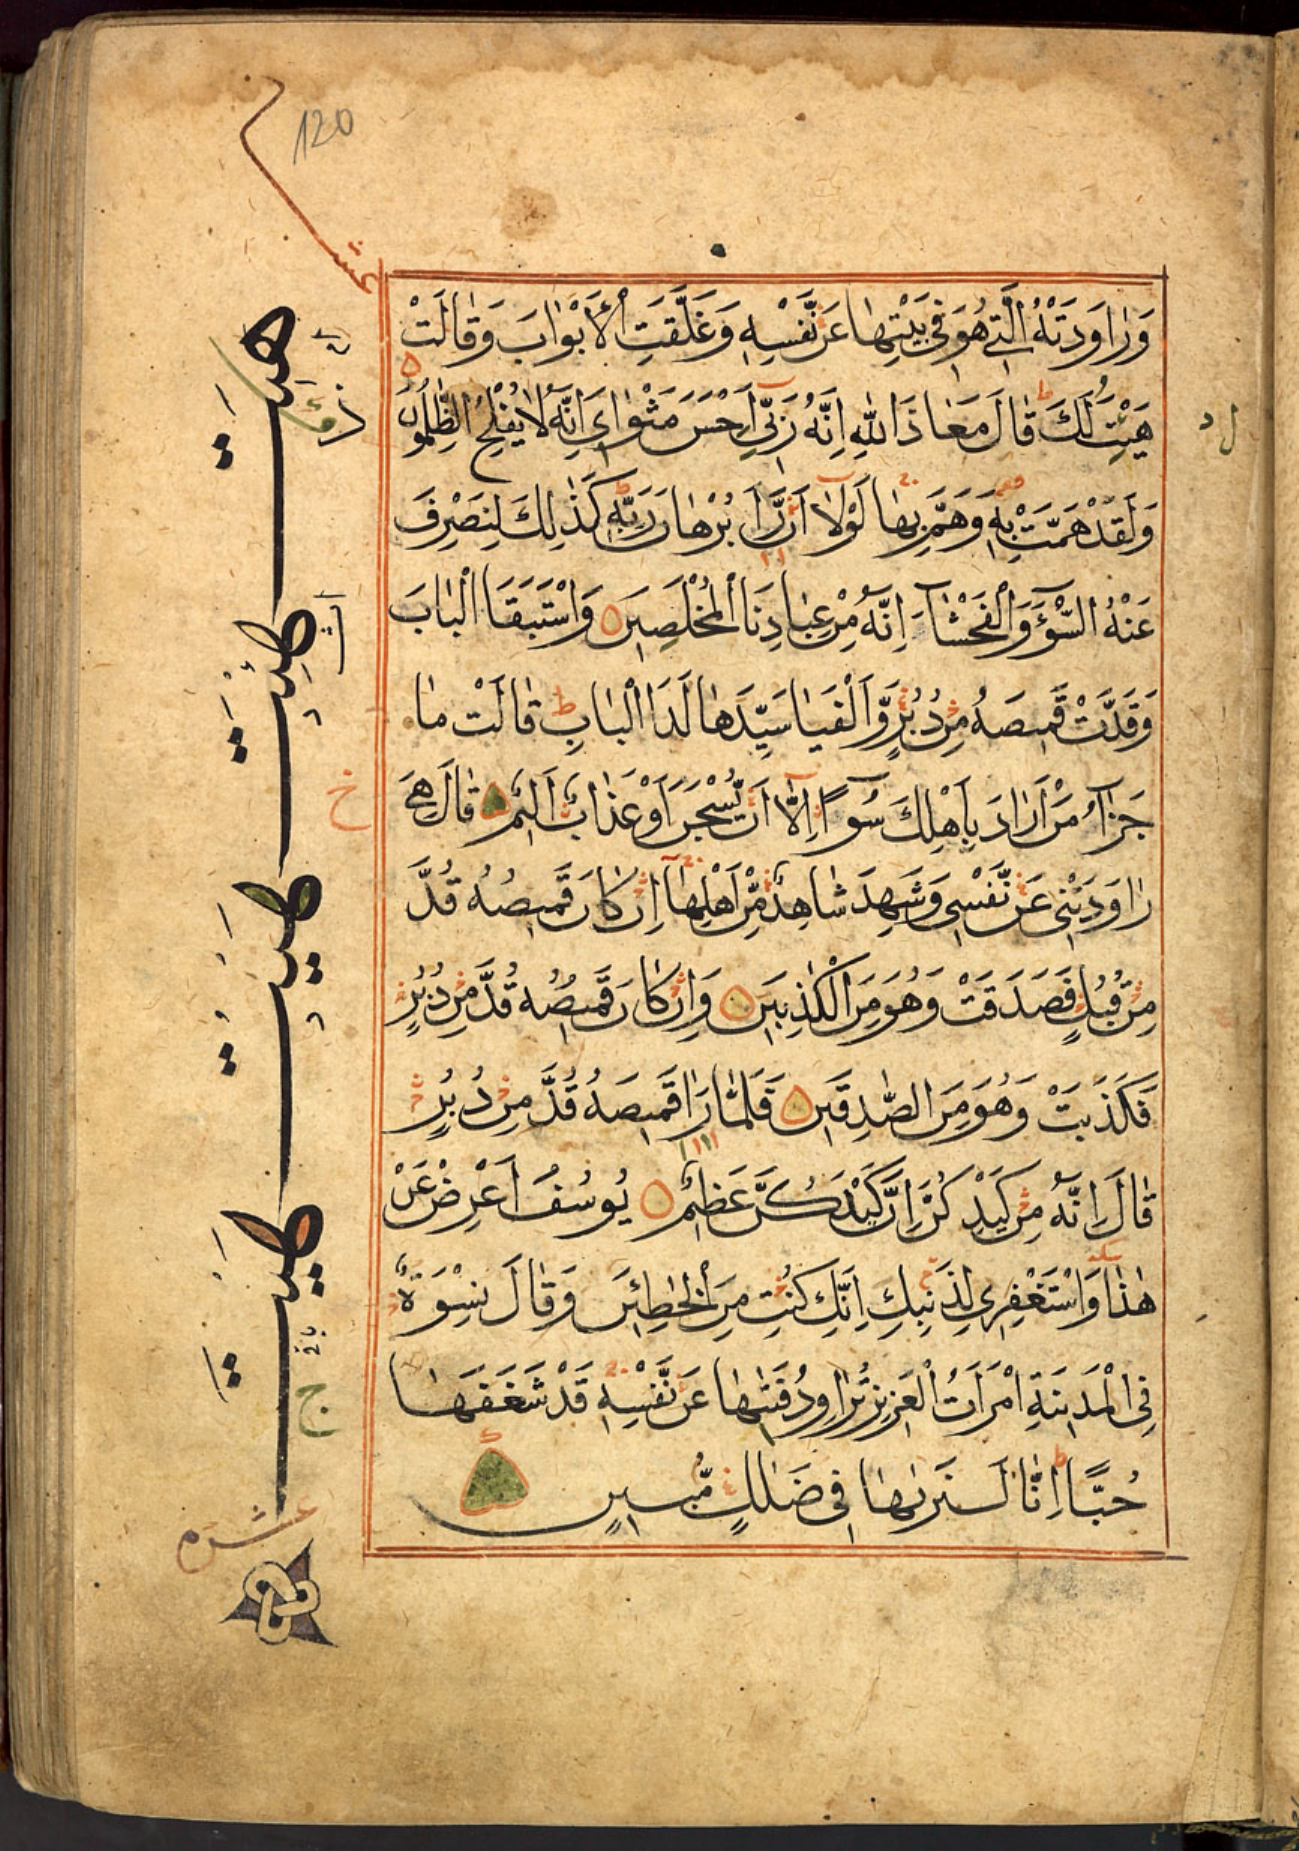 120
عشر
وَرَاوَدَتْهُ الَّتِي هُوَ فِي بَيْتِهَا عَنْ نَّفْسِهِ وَغَلَّقَتِ الْأَبْوَابَ وَقَالَتْ
هَيْتَ لَكَ قَالَ مَعَاذَ اللّٰهِ اِنَّهُ رَبِّي اَحْسَنَ مَثْوَايَ اِنَّهُ لَا يُفْلِحُ الظّٰلِمُونَ
وَلَقَدْ هَمَّتْ بِهِ وَهَمَّ بِهَا لَوْلَا اَنْ رَّاٰ بُرْهَانَ رَبِّهِ كَذٰلِكَ لِنَصْرِفَ
عَنْهُ السُّوٓءَ وَالْفَحْشَآءَ اِنَّهُ مِنْ عِبَادِنَا الْمُخْلَصِينَ وَاسْتَبَقَا الْبَابَ
وَقَدَّتْ قَمِيصَهُ مِنْ دُبُرٍ وَّاَلْفَيَا سَيِّدَهَا لَدَا الْبَابِ قَالَتْ مَا
جَزَآءُ مَنْ اَرَادَ بِاَهْلِكَ سُوٓءًا اِلَّآ اَنْ يُّسْجَنَ اَوْ عَذَابٌ اَلِيمٌ قَالَ هِيَ
رَاوَدَتْنِي عَنْ نَّفْسِي وَشَهِدَ شَاهِدٌ مِّنْ اَهْلِهَآ اِنْ كَانَ قَمِيصُهُ قُدَّ
مِنْ قُبُلٍ فَصَدَقَتْ وَهُوَ مِنَ الْكٰذِبِينَ وَاِنْ كَانَ قَمِيصُهُ قُدَّ مِنْ دُبُرٍ
فَكَذَبَتْ وَهُوَ مِنَ الصّٰدِقِينَ فَلَمَّا رَاٰ قَمِيصَهُ قُدَّ مِنْ دُبُرٍ
قَالَ اِنَّهُ مِنْ كَيْدِكُنَّ اِنَّ كَيْدَكُنَّ عَظِيمٌ يُوسُفُ اَعْرِضْ عَنْ
هٰذَا وَاسْتَغْفِرِي لِذَنْبِكِ اِنَّكِ كُنْتِ مِنَ الْخٰطِئِينَ وَقَالَ نِسْوَةٌ
فِي الْمَدِينَةِ امْرَاَتُ الْعَزِيزِ تُرَاوِدُ فَتٰىهَا عَنْ نَّفْسِهِ قَدْ شَغَفَهَا
حُبًّا اِنَّا لَنَرٰىهَا فِي ضَلٰلٍ مُّبِينٍ
هِيتَ
خ
ج